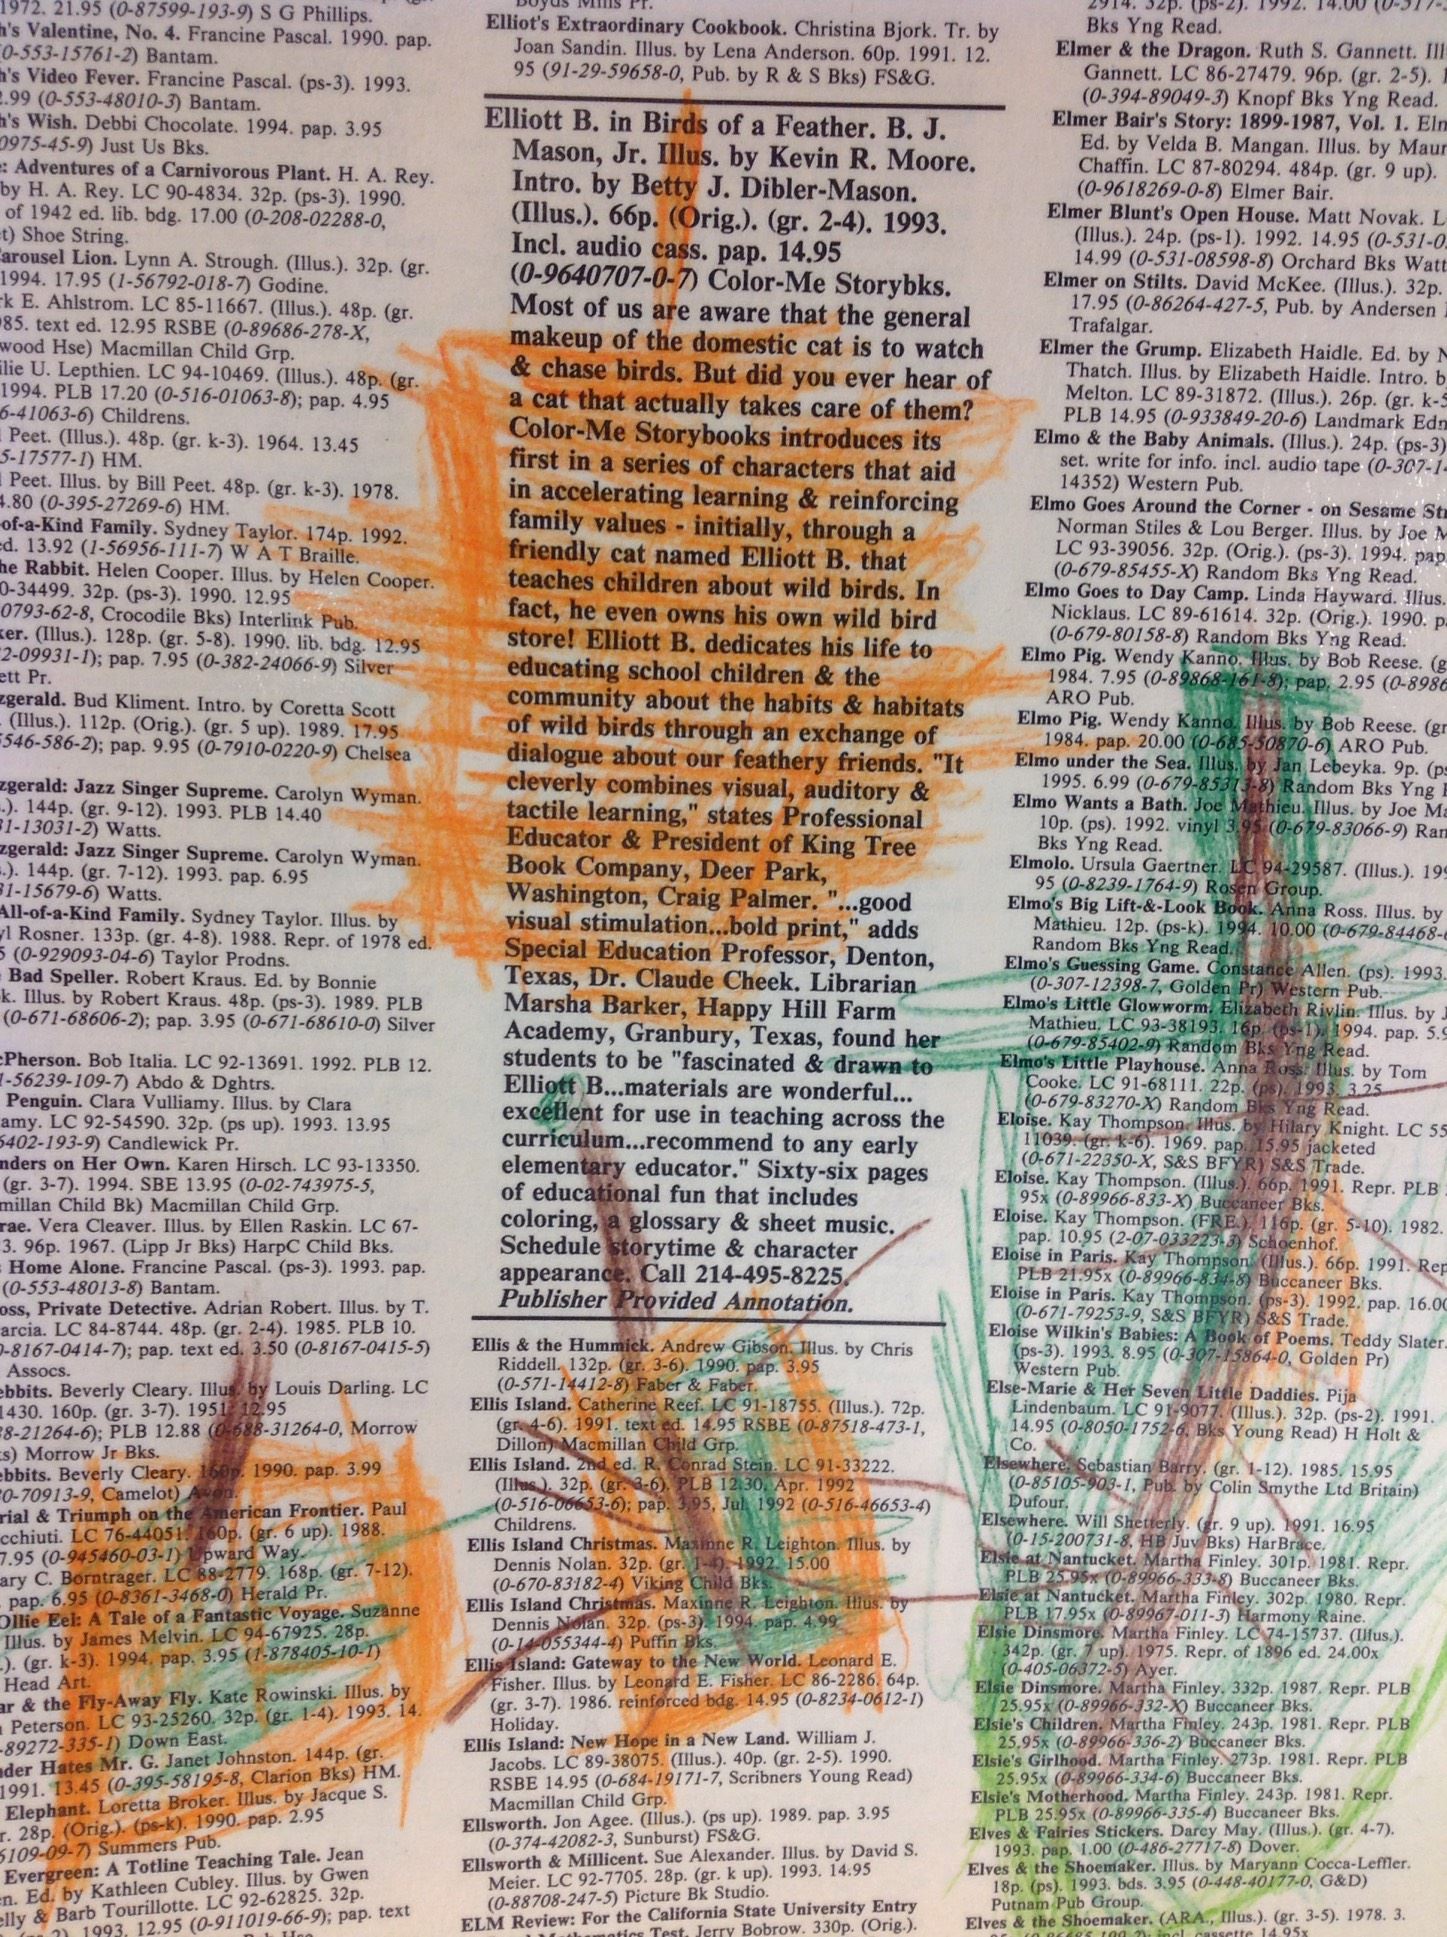 1972. 21.95 (0-87599-193-9) S G Phillips.
h's Valentine, No. 4. Francine Pascal. 1990. pap.
(0-553-15761-2) Bantam.
h's Video Fever. Francine Pascal. (ps-3). 1993.
2.99 (0-553-48010-3) Bantam.
h's Wish. Debbi Chocolate. 1994. pap. 3.95
0975-45-9) Just Us Bks.
e: Adventures of a Carnivorous Plant. H. A. Rey.
by H. A. Rey. LC 90-4834. 32p. (ps-3). 1990.
of 1942 ed. lib. bdg. 17.00 (0-208-02288-0,
t) Shoe String.
Carousel Lion. Lynn A. Strough. (Illus.). 32p. (gr.
1994. 17.95 (1-56792-018-7) Godine.
rk E. Ahlstrom. LC 85-11667. (Illus.). 48p. (gr.
985. text ed. 12.95 RSBE (0-89686-278-X,
wood Hse) Macmillan Child Grp.
ilie U. Lepthien. LC 94-10469. (Illus.). 48p. (gr.
1994. PLB 17.20 (0-516-01063-8); pap. 4.95
6-41063-6) Childrens.
l Peet. (Illus.). 48p. (gr. k-3). 1964. 13.45
5-17577-1) HM.
l Peet. Illus. by Bill Peet. 48p. (gr. k-3). 1978.
4.80 (0-395-27269-6) HM.
-of-a-Kind Family. Sydney Taylor. 174p. 1992.
ed. 13.92 (1-56956-111-7) W A T Braille.
he Rabbit. Helen Cooper. Illus. by Helen Cooper.
0-34499. 32p. (ps-3). 1990. 12.95
0793-62-8, Crocodile Bks) Interlink Pub.
ker. (Illus.). 128p. (gr. 5-8). 1990. lib. bdg. 12.95
2-09931-1); pap. 7.95 (0-382-24066-9) Silver
ett Pr.
zgerald. Bud Kliment. Intro. by Coretta Scott
(Illus.). 112p. (Orig.). (gr. 5 up). 1989. 17.95
5546-586-2); pap. 9.95 (0-7910-0220-9) Chelsea
zgerald: Jazz Singer Supreme. Carolyn Wyman.
.). 144p. (gr. 9-12). 1993. PLB 14.40
31-13031-2) Watts.
zgerald: Jazz Singer Supreme. Carolyn Wyman.
.). 144p. (gr. 7-12). 1993. pap. 6.95
31-15679-6) Watts.
All-of-a-Kind Family. Sydney Taylor. Illus. by
yl Rosner. 133p. (gr. 4-8). 1988. Repr. of 1978 ed.
5 (0-929093-04-6) Taylor Prodns.
Bad Speller. Robert Kraus. Ed. by Bonnie
k. Illus. by Robert Kraus. 48p. (ps-3). 1989. PLB
(0-671-68606-2); pap. 3.95 (0-671-68610-0) Silver
cPherson. Bob Italia. LC 92-13691. 1992. PLB 12.
1-56239-109-7) Abdo & Dghtrs.
Penguin. Clara Vulliamy. Illus. by Clara
amy. LC 92-54590. 32p. (ps up). 1993. 13.95
6402-193-9) Candlewick Pr.
nders on Her Own. Karen Hirsch. LC 93-13350.
(gr. 3-7). 1994. SBE 13.95 (0-02-743975-5,
millan Child Bk) Macmillan Child Grp.
rae. Vera Cleaver. Illus. by Ellen Raskin. LC 67-
3. 96p. 1967. (Lipp Jr Bks) HarpC Child Bks.
s Home Alone. Francine Pascal. (ps-3). 1993. pap.
(0-553-48013-8) Bantam.
oss, Private Detective. Adrian Robert. Illus. by T.
arcia. LC 84-8744. 48p. (gr. 2-4). 1985. PLB 10.
0-8167-0414-7); pap. text ed. 3.50 (0-8167-0415-5)
Assocs.
ebbits. Beverly Cleary. Illus. by Louis Darling. LC
1430. 160p. (gr. 3-7). 1951. 12.95
88-21264-6); PLB 12.88 (0-688-31264-0, Morrow
ks) Morrow Jr Bks.
ebbits. Beverly Cleary. 160p. 1990. pap. 3.99
80-70913-9, Camelot) Avon.
rial & Triumph on the American Frontier. Paul
cchiuti. LC 76-44051. 160p. (gr. 6 up). 1988.
7.95 (0-945460-03-1) Upward Way.
ary C. Borntrager. LC 88-2779. 168p. (gr. 7-12).
pap. 6.95 (0-8361-3468-0) Herald Pr.
Ollie Eel: A Tale of a Fantastic Voyage. Suzanne
Illus. by James Melvin. LC 94-67925. 28p.
.). (gr. k-3). 1994. pap. 3.95 (1-878405-10-1)
Head Art.
ar & the Fly-Away Fly. Kate Rowinski. Illus. by
Peterson. LC 93-25260. 32p. (gr. 1-4). 1993. 14.
-89272-335-1) Down East.
nder Hates Mr. G. Janet Johnston. 144p. (gr.
1991. 13.45 (0-395-58195-8, Clarion Bks) HM.
Elephant. Loretta Broker. Illus. by Jacque S.
r. 28p. (Orig.). (ps-k). 1990. pap. 2.95
5109-09-7) Summers Pub.
Evergreen: A Totline Teaching Tale. Jean
en. Ed. by Kathleen Cubley. Illus. by Gwen
elly & Barb Tourillotte. LC 92-62825. 32p.
2). 1993. 12.95 (0-911019-66-9); pap. text
Boyds Mills Pr.
Elliot's Extraordinary Cookbook. Christina Bjork. Tr. by
Joan Sandin. Illus. by Lena Anderson. 60p. 1991. 12.
95 (91-29-59658-0, Pub. by R & S Bks) FS&G.
Elliott B. in Birds of a Feather. B. J.
Mason, Jr. Illus. by Kevin R. Moore.
Intro. by Betty J. Dibler-Mason.
(Illus.). 66p. (Orig.). (gr. 2-4). 1993.
Incl. audio cass. pap. 14.95
(0-9640707-0-7) Color-Me Storybks.
Most of us are aware that the general
makeup of the domestic cat is to watch
& chase birds. But did you ever hear of
a cat that actually takes care of them?
Color-Me Storybooks introduces its
first in a series of characters that aid
in accelerating learning & reinforcing
family values - initially, through a
friendly cat named Elliott B. that
teaches children about wild birds. In
fact, he even owns his own wild bird
store! Elliott B. dedicates his life to
educating school children & the
community about the habits & habitats
of wild birds through an exchange of
dialogue about our feathery friends. "It
cleverly combines visual, auditory &
tactile learning," states Professional
Educator & President of King Tree
Book Company, Deer Park,
Washington, Craig Palmer. "...good
visual stimulation...bold print," adds
Special Education Professor, Denton,
Texas, Dr. Claude Cheek. Librarian
Marsha Barker, Happy Hill Farm
Academy, Granbury, Texas, found her
students to be "fascinated & drawn to
Elliott B...materials are wonderful...
excellent for use in teaching across the
curriculum...recommend to any early
elementary educator." Sixty-six pages
of educational fun that includes
coloring, a glossary & sheet music.
Schedule storytime & character
appearance. Call 214-495-8225.
Publisher Provided Annotation.
Ellis & the Hummick. Andrew Gibson. Illus. by Chris
Riddell. 132p. (gr. 3-6). 1990. pap. 3.95
(0-571-14412-8) Faber & Faber.
Ellis Island. Catherine Reef. LC 91-18755. (Illus.). 72p.
(gr. 4-6). 1991. text ed. 14.95 RSBE (0-87518-473-1,
Dillon) Macmillan Child Grp.
Ellis Island. 2nd ed. R. Conrad Stein. LC 91-33222.
(Illus.). 32p. (gr. 3-6). PLB 12.30. Apr. 1992
(0-516-06653-6); pap. 3.95, Jul. 1992 (0-516-46653-4)
Childrens.
Ellis Island Christmas. Maxinne R. Leighton. Illus. by
Dennis Nolan. 32p. (gr. 1-4). 1992. 15.00
(0-670-83182-4) Viking Child Bks.
Ellis Island Christmas. Maxinne R. Leighton. Illus. by
Dennis Nolan. 32p. (ps-3). 1994. pap. 4.99
(0-14-055344-4) Puffin Bks.
Ellis Island: Gateway to the New World. Leonard E.
Fisher. Illus. by Leonard E. Fisher. LC 86-2286. 64p.
(gr. 3-7). 1986. reinforced bdg. 14.95 (0-8234-0612-1)
Holiday.
Ellis Island: New Hope in a New Land. William J.
Jacobs. LC 89-38075. (Illus.). 40p. (gr. 2-5). 1990.
RSBE 14.95 (0-684-19171-7, Scribners Young Read)
Macmillan Child Grp.
Ellsworth. Jon Agee. (Illus.). (ps up). 1989. pap. 3.95
(0-374-42082-3, Sunburst) FS&G.
Ellsworth & Millicent. Sue Alexander. Illus. by David S.
Meier. LC 92-7705. 28p. (gr. k up). 1993. 14.95
(0-88708-247-5) Picture Bk Studio.
ELM Review: For the California State University Entry
Mathematics Test. Jerry Bobrow. 330p. (Orig.).
2914. 32p. (ps-2). 1992. 14.00 (0-517-
Bks Yng Read.
Elmer & the Dragon. Ruth S. Gannett. Ill
Gannett. LC 86-27479. 96p. (gr. 2-5).
(0-394-89049-3) Knopf Bks Yng Read.
Elmer Bair's Story: 1899-1987, Vol. 1. Elm
Ed. by Velda B. Mangan. Illus. by Maur
Chaffin. LC 87-80294. 484p. (gr. 9 up).
(0-9618269-0-8) Elmer Bair.
Elmer Blunt's Open House. Matt Novak. L
(Illus.). 24p. (ps-1). 1992. 14.95 (0-531-0
14.99 (0-531-08598-8) Orchard Bks Watt
Elmer on Stilts. David McKee. (Illus.). 32p.
17.95 (0-86264-427-5, Pub. by Andersen
Trafalgar.
Elmer the Grump. Elizabeth Haidle. Ed. by N
Thatch. Illus. by Elizabeth Haidle. Intro. b
Melton. LC 89-31872. (Illus.). 26p. (gr. k-5
PLB 14.95 (0-933849-20-6) Landmark Edn
Elmo & the Baby Animals. (Illus.). 24p. (ps-3)
set. write for info. incl. audio tape (0-307-14
14352) Western Pub.
Elmo Goes Around the Corner - on Sesame Str
Norman Stiles & Lou Berger. Illus. by Joe M
LC 93-39056. 32p. (Orig.). (ps-3). 1994. pap
(0-679-85455-X) Random Bks Yng Read.
Elmo Goes to Day Camp. Linda Hayward. Illus.
Nicklaus. LC 89-61614. 32p. (Orig.). 1990. p
(0-679-80158-8) Random Bks Yng Read.
Elmo Pig. Wendy Kanno. Illus. by Bob Reese. (g
1984. 7.95 (0-89868-161-8); pap. 2.95 (0-8986
ARO Pub.
Elmo Pig. Wendy Kanno. Illus. by Bob Reese. (gr
1984. pap. 20.00 (0-685-50870-6) ARO Pub.
Elmo under the Sea. Illus. by Jan Lebeyka. 9p. (ps
1995. 6.99 (0-679-85313-8) Random Bks Yng
Elmo Wants a Bath. Joe Mathieu. Illus. by Joe Ma
10p. (ps). 1992. vinyl 3.95 (0-679-83066-9) Ran
Bks Yng Read.
Elmolo. Ursula Gaertner. LC 94-29587. (Illus.). 199
95 (0-8239-1764-9) Rosen Group.
Elmo's Big Lift-&-Look Book. Anna Ross. Illus. by
Mathieu. 12p. (ps-k). 1994. 10.00 (0-679-84468-
Random Bks Yng Read.
Elmo's Guessing Game. Constance Allen. (ps). 1993.
(0-307-12398-7, Golden Pr) Western Pub.
Elmo's Little Glowworm. Elizabeth Rivlin. Illus. by J
Mathieu. LC 93-38193. 16p. (ps-1). 1994. pap. 5.9
(0-679-85402-9) Random Bks Yng Read.
Elmo's Little Playhouse. Anna Ross. Illus. by Tom
Cooke. LC 91-68111. 22p. (ps). 1993. 3.25
(0-679-83270-X) Random Bks Yng Read.
Eloise. Kay Thompson. Illus. by Hilary Knight. LC 55
11039. (gr. k-6). 1969. pap. 15.95 jacketed
(0-671-22350-X, S&S BFYR) S&S Trade.
Eloise. Kay Thompson. (Illus.). 66p. 1991. Repr. PLB
95x (0-89966-833-X) Buccaneer Bks.
Eloise. Kay Thompson. (FRE.). 116p. (gr. 5-10). 1982.
pap. 10.95 (2-07-033223-3) Schoenhof.
Eloise in Paris. Kay Thompson. (Illus.). 66p. 1991. Rep
PLB 21.95x (0-89966-834-8) Buccaneer Bks.
Eloise in Paris. Kay Thompson. (ps-3). 1992. pap. 16.00
(0-671-79253-9, S&S BFYR) S&S Trade.
Eloise Wilkin's Babies: A Book of Poems. Teddy Slater.
(ps-3). 1993. 8.95 (0-307-15864-0, Golden Pr)
Western Pub.
Else-Marie & Her Seven Little Daddies. Pija
Lindenbaum. LC 91-9077. (Illus.). 32p. (ps-2). 1991.
14.95 (0-8050-1752-6, Bks Young Read) H Holt &
Co.
Elsewhere. Sebastian Barry. (gr. 1-12). 1985. 15.95
(0-85105-903-1, Pub. by Colin Smythe Ltd Britain)
Dufour.
Elsewhere. Will Shetterly. (gr. 9 up). 1991. 16.95
(0-15-200731-8, HB Juv Bks) HarBrace.
Elsie at Nantucket. Martha Finley. 301p. 1981. Repr.
PLB 25.95x (0-89966-333-8) Buccaneer Bks.
Elsie at Nantucket. Martha Finley. 302p. 1980. Repr.
PLB 17.95x (0-89967-011-3) Harmony Raine.
Elsie Dinsmore. Martha Finley. LC 74-15737. (Illus.).
342p. (gr. 7 up). 1975. Repr. of 1896 ed. 24.00x
(0-405-06372-5) Ayer.
Elsie Dinsmore. Martha Finley. 332p. 1987. Repr. PLB
25.95x (0-89966-332-X) Buccaneer Bks.
Elsie's Children. Martha Finley. 243p. 1981. Repr. PLB
25.95x (0-89966-336-2) Buccaneer Bks.
Elsie's Girlhood. Martha Finley. 273p. 1981. Repr. PLB
25.95x (0-89966-334-6) Buccaneer Bks.
Elsie's Motherhood. Martha Finley. 243p. 1981. Repr.
PLB 25.95x (0-89966-335-4) Buccaneer Bks.
Elves & Fairies Stickers. Darcy May. (Illus.). (gr. 4-7).
1993. pap. 1.00 (0-486-27717-8) Dover.
Elves & the Shoemaker. Illus. by Maryann Cocca-Leffler.
18p. (ps). 1993. bds. 3.95 (0-448-40177-0, G&D)
Putnam Pub Group.
Elves & the Shoemaker. (ARA., Illus.). (gr. 3-5). 1978. 3.